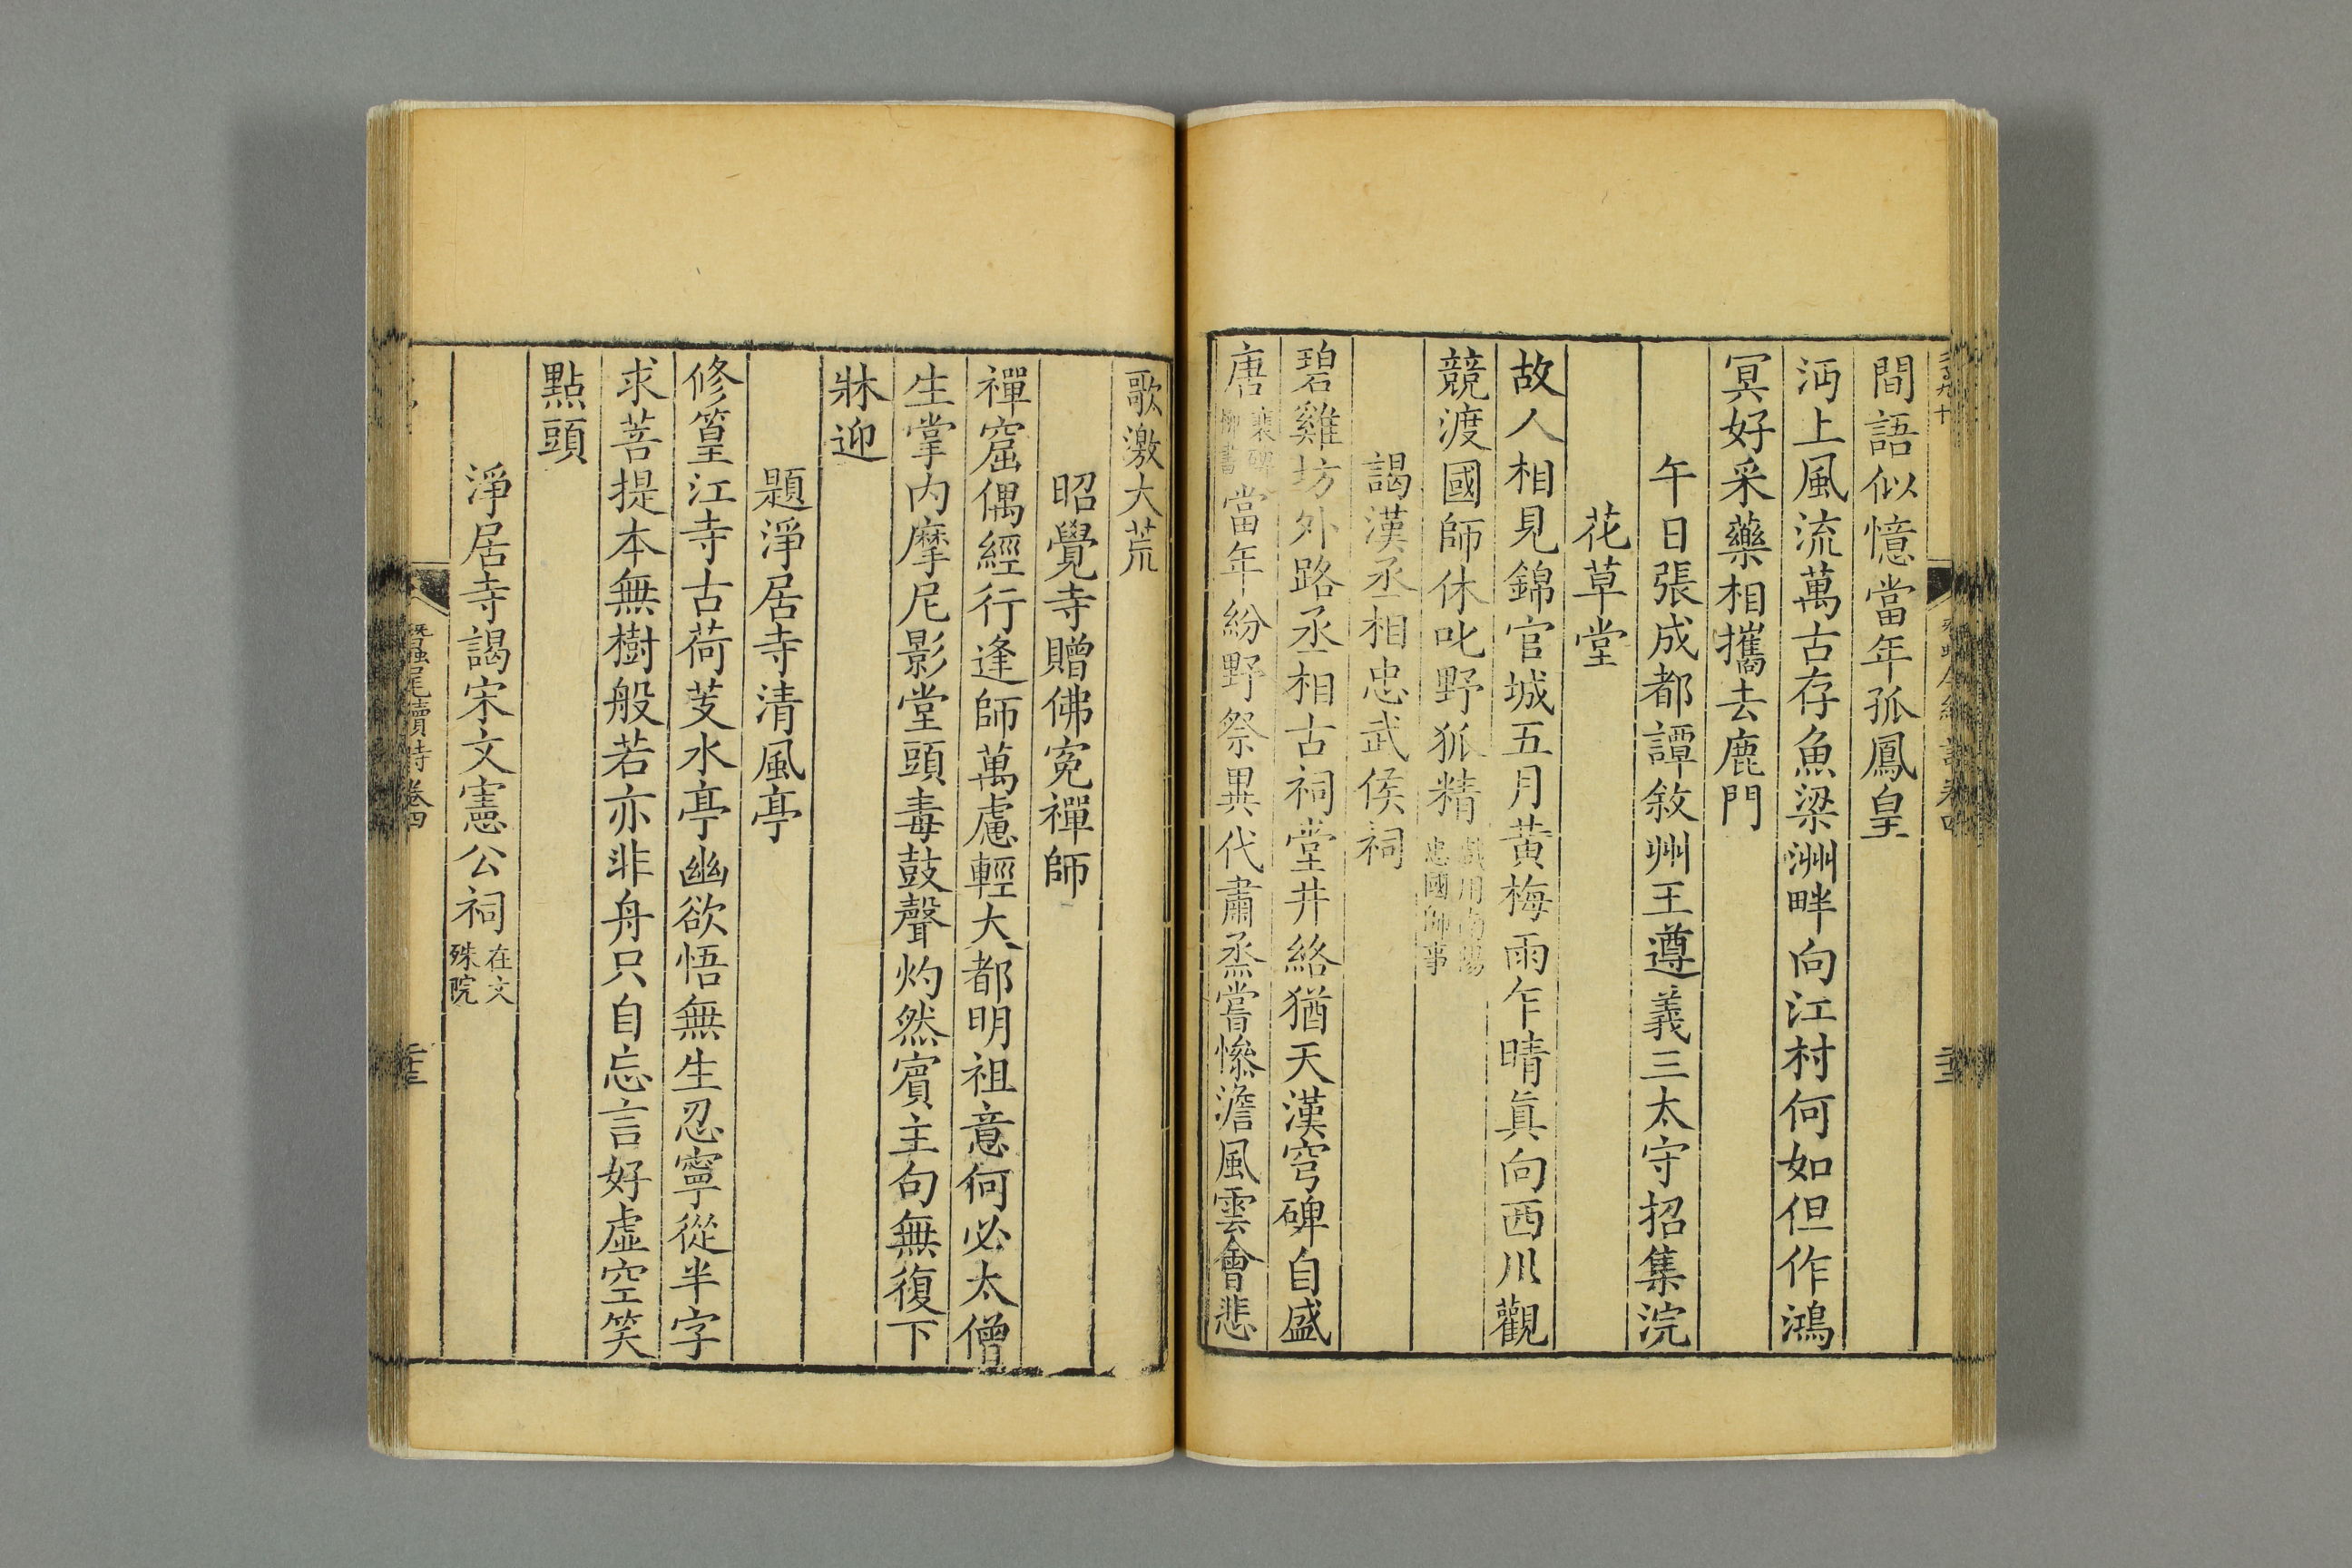 間語似憶當年孤鳳皇
沔上風流萬古存魚梁洲畔向江村何如但作鴻
冥好采藥相攜去鹿門
午日張成都譚敘州王遵義三太守招集浣
花草堂
故人相見錦官城五月黃梅雨乍晴眞向西川觀
競渡國師休叱野狐精戲用南陽
忠國師事
謁漢丞相忠武侯祠
碧雞坊外路丞相古祠堂井絡猶天漢穹碑自盛
唐裴碑
柳書當年紛野祭異代肅烝嘗慘澹風雲會悲
歌激大荒
昭覺寺贈佛寃禪師
禪窟偶經行逢師萬慮輕大都明祖意何必太僧
生掌內摩尼影堂頭毒鼓聲灼然賓主句無復下
牀迎
題淨居寺清風亭
修篁江寺古荷芰水亭幽欲悟無生忍寧從半字
求菩提本無樹般若亦非舟只自忘言好虛空笑
點頭
淨居寺謁宋文憲公祠在文
殊院
蠶尾續詩卷四